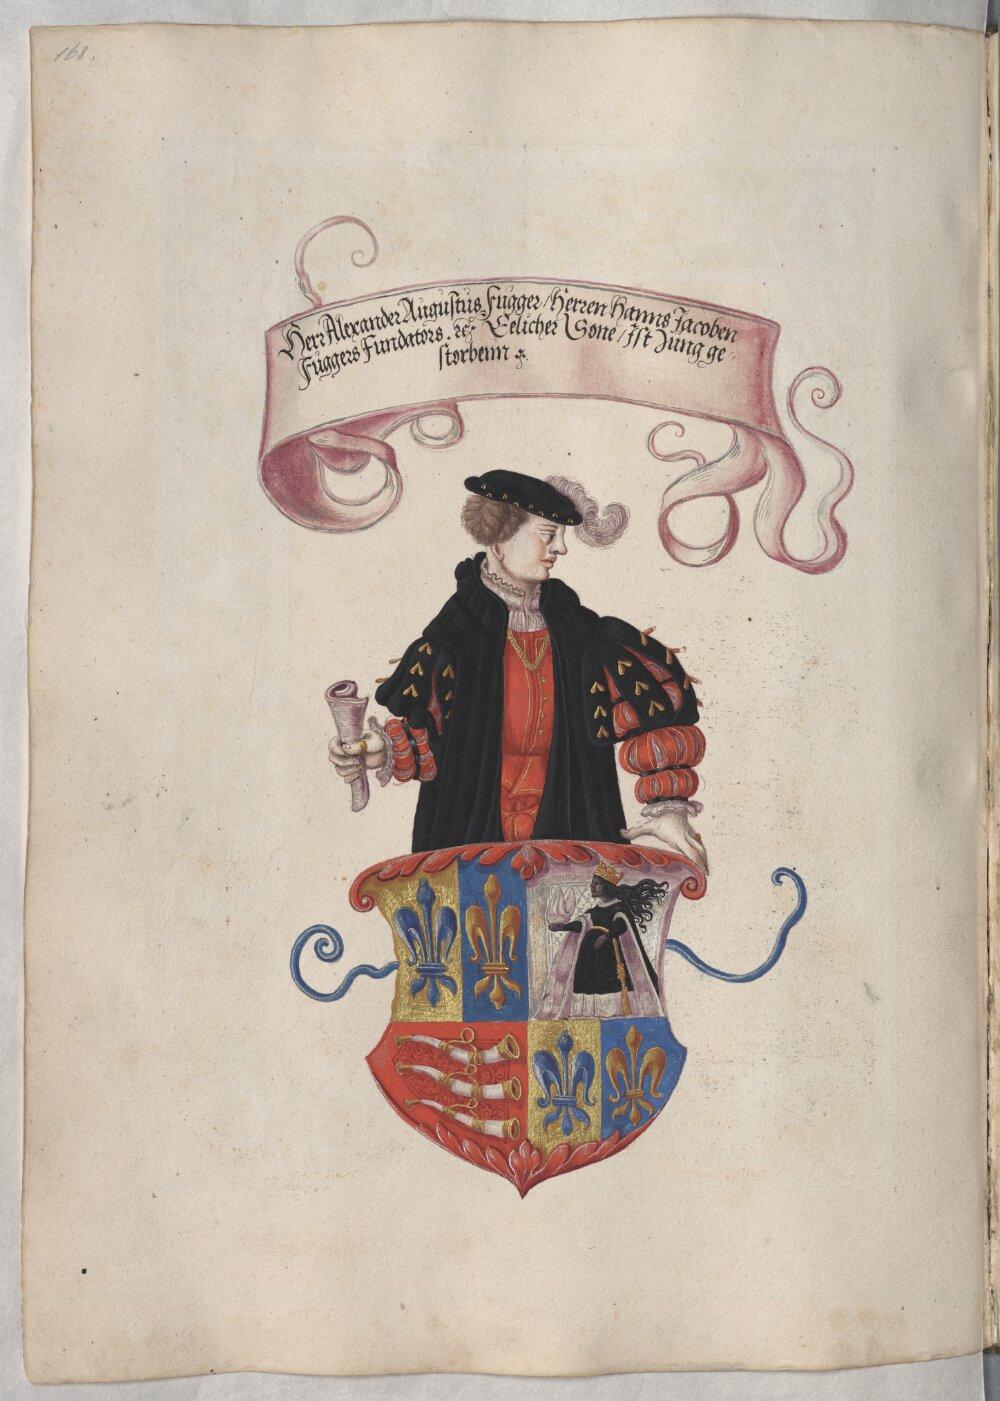 168.
Herr Alexander Augustus Fugger / Herren Hanns Jacoben
Fuggers Fundators. ꝛc. Eelicher Sone / Ist Jung ge⸗
storbenn